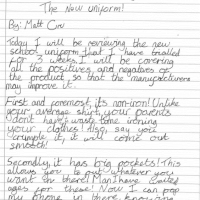 The New uniform!
By: Matt
Today I will be reviewing the new
school uniform that I have trialled
for 3 weeks. I will be covering
all the positives and negatives of
the product so that the manufacturers
may improve it.
First and foremost, its non-iron! Unlike
your average shirt, your parents
don't have to waste time ironing
your clothes! Also, say you
crumple it, it will come out
smooth!
Secondly, it has big pockets! This
allows you to put whatever you
want in there! Man I have waited
ages for these! Now I can pop
my phone in there, knowing